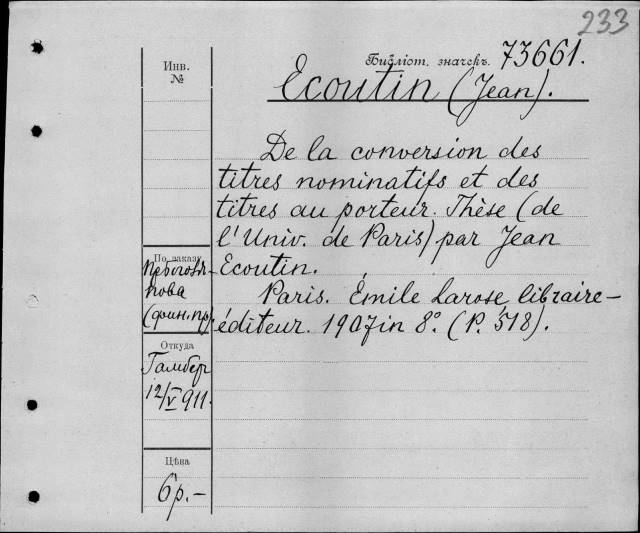 233
Инв.
№
Библіот. значекъ. 73661.
Ecoutin (Jean).
De la conversion des
titres nominatifs et des
titres au porteur. Thèse (de
l'Univ. de Paris) par Jean
Ecoutin.
Paris. Émile Larose, libraire-
éditeur. 1907 in 8° (P. 518).
По заказу
нова
(фин. пр.)
Откуда
Гамбер
12/V 911.
Цѣна
6 р. –